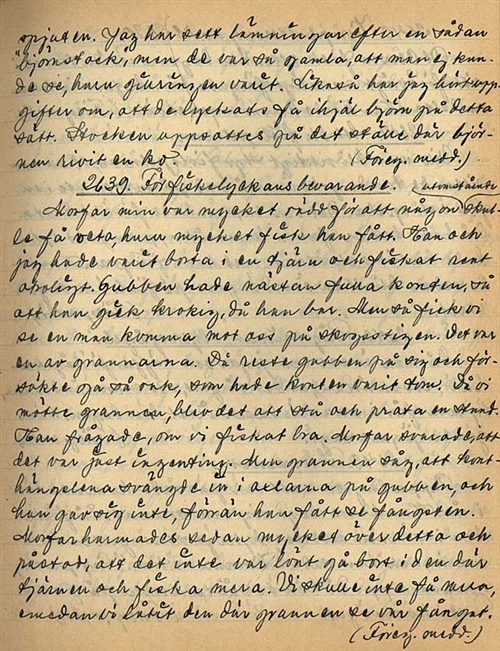 spjuten. Jag har sett lämningar efter en sådan
"björnstock", men de var så gamla, att man ej kun-
de se, huru gillringen varit. Likaså har jag hört upp-
gifter om, att de lyckats få ihjäl björn på detta
sätt. Stocken uppsattes på det ställe där björ-
nen rivit en ko. (Föreg. medd.)
2639. För fiskelyckans bevarande.
utomstående
Morfar min var mycket rädd för att någon skul-
le få veta, huru mycket fisk han fått. Han och
jag hade varit borta i en tjärn och fiskat rent
otroligt. Gubben hade nästan fulla konten, så
att han gick krokig, då han bar. Men så fick vi
se en man komma mot oss på skogsstigen. Det var
en av grannarna. Då reste gubben på sig och för-
sökte gå så rak, som hade konten varit tom. Då vi
mötte grannen, blev det att stå och prata en stund.
Han frågade, om vi fiskat bra. Morfar svarade, att
det var just ingenting. Men grannen såg, att kont-
hängslena svängde in i axlarna på gubben, och
han gav sig inte, förrän han fått se fångsten.
Morfar harmades sedan mycket över detta och
påstod, att det inte var lönt gå bort i den där
tjärnen och fiska mera. Vi skulle inte få mera,
emedan vi låtit den där grannen se vår fångst.
(Föreg. medd.)